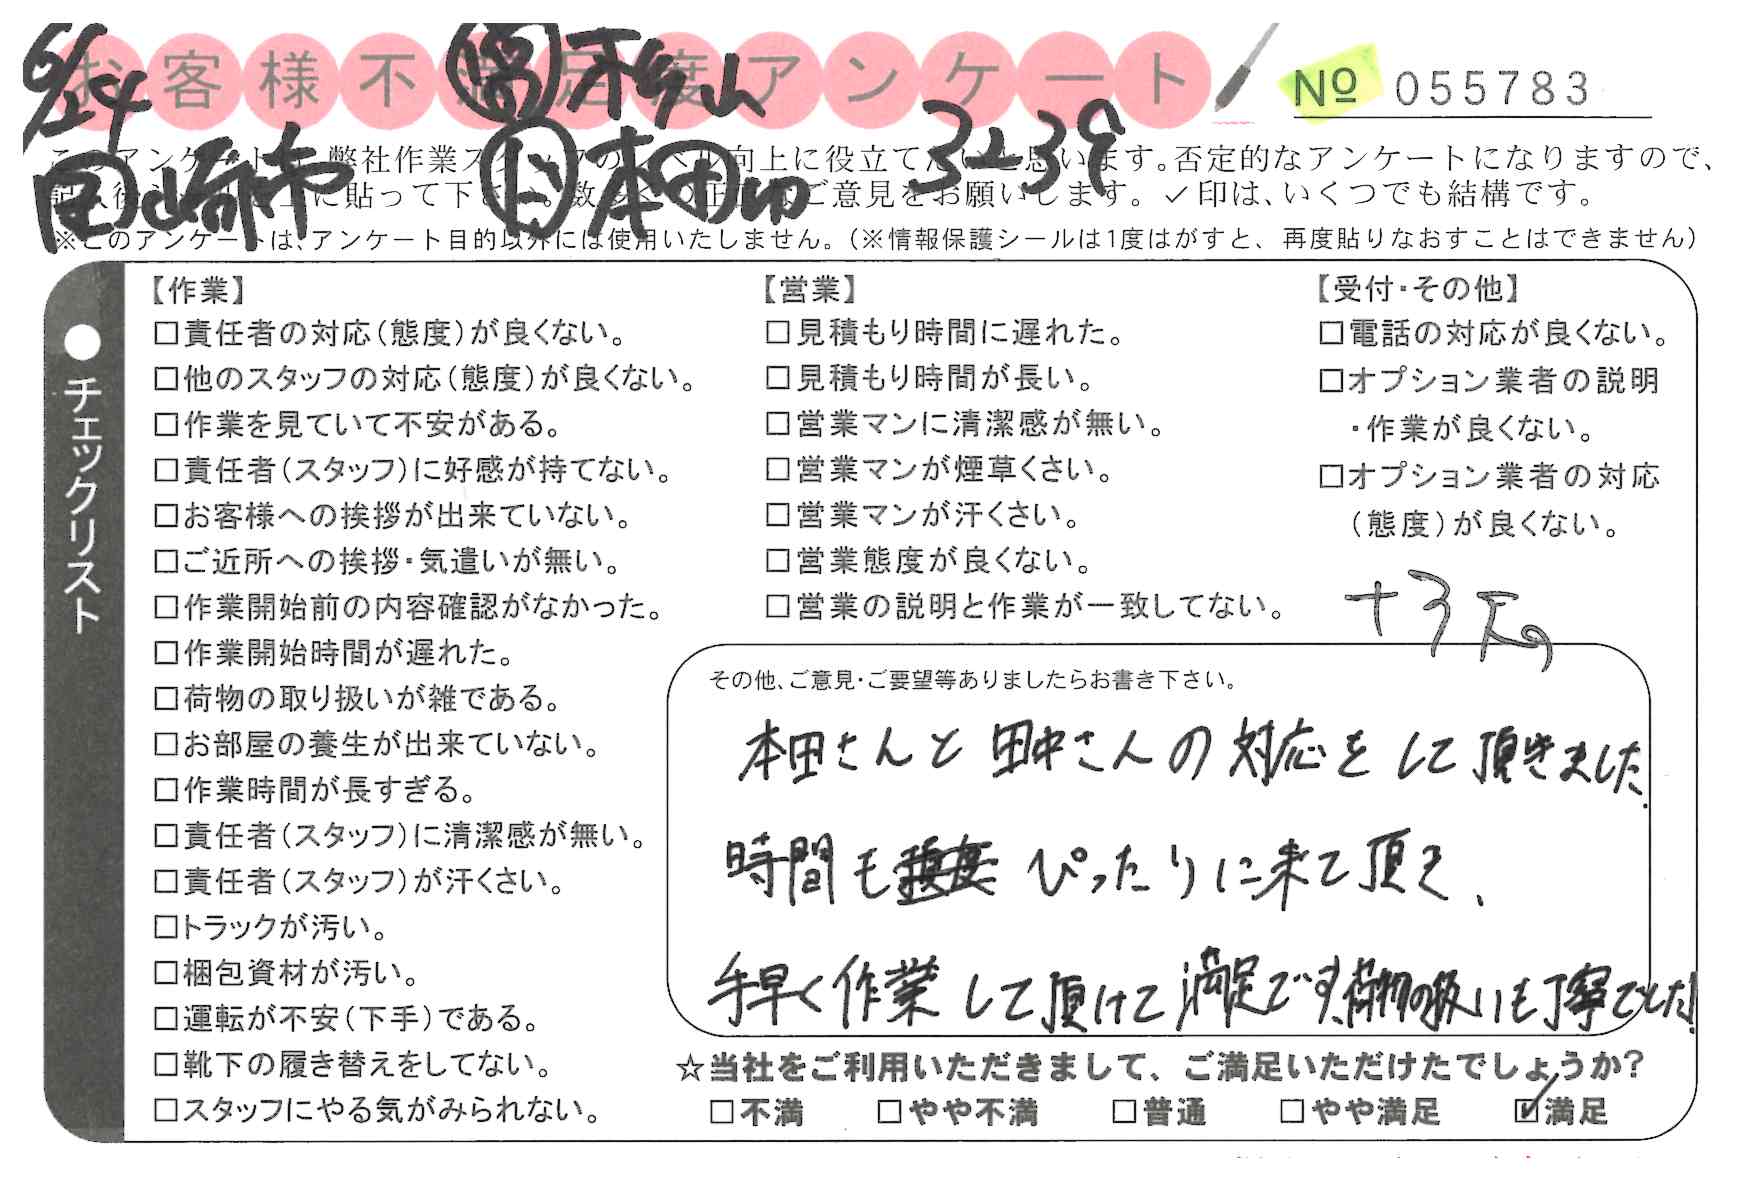 お客様不満足度アンケート
№ 055783
6/24
営 杉山
3239
岡崎市
本田
このアンケートは、弊社作業スタッフのレベル向上に役立てたいと思います。否定的なアンケートになりますので、
に貼って下さい。ご意見をお願いします。✓印は、いくつでも結構です。
※このアンケートは、アンケート目的以外には使用いたしません。（※情報保護シールは1度はがすと、再度貼りなおすことはできません）
●チェックリスト
【作業】
□責任者の対応（態度）が良くない。
□他のスタッフの対応（態度）が良くない。
□作業を見ていて不安がある。
□責任者（スタッフ）に好感が持てない。
□お客様への挨拶が出来ていない。
□ご近所への挨拶・気遣いが無い。
□作業開始前の内容確認がなかった。
□作業開始時間が遅れた。
□荷物の取り扱いが雑である。
□お部屋の養生が出来ていない。
□作業時間が長すぎる。
□責任者（スタッフ）に清潔感が無い。
□責任者（スタッフ）が汗くさい。
□トラックが汚い。
□梱包資材が汚い。
□運転が不安（下手）である。
□靴下の履き替えをしてない。
□スタッフにやる気がみられない。
【営業】
□見積もり時間に遅れた。
□見積もり時間が長い。
□営業マンに清潔感が無い。
□営業マンが煙草くさい。
□営業マンが汗くさい。
□営業態度が良くない。
□営業の説明と作業が一致してない。
【受付・その他】
□電話の対応が良くない。
□オプション業者の説明
・作業が良くない。
□オプション業者の対応
（態度）が良くない。
+3
その他、ご意見・ご要望等ありましたらお書き下さい。
本田さんと田中さんの対応をして頂きました。
時間も ぴったりに来て頂き、
手早く作業して頂けて満足です。荷物の扱いも丁寧でした!
☆当社をご利用いただきまして、ご満足いただけたでしょうか?
□不満 □やや不満 □普通 □やや満足 ☑満足